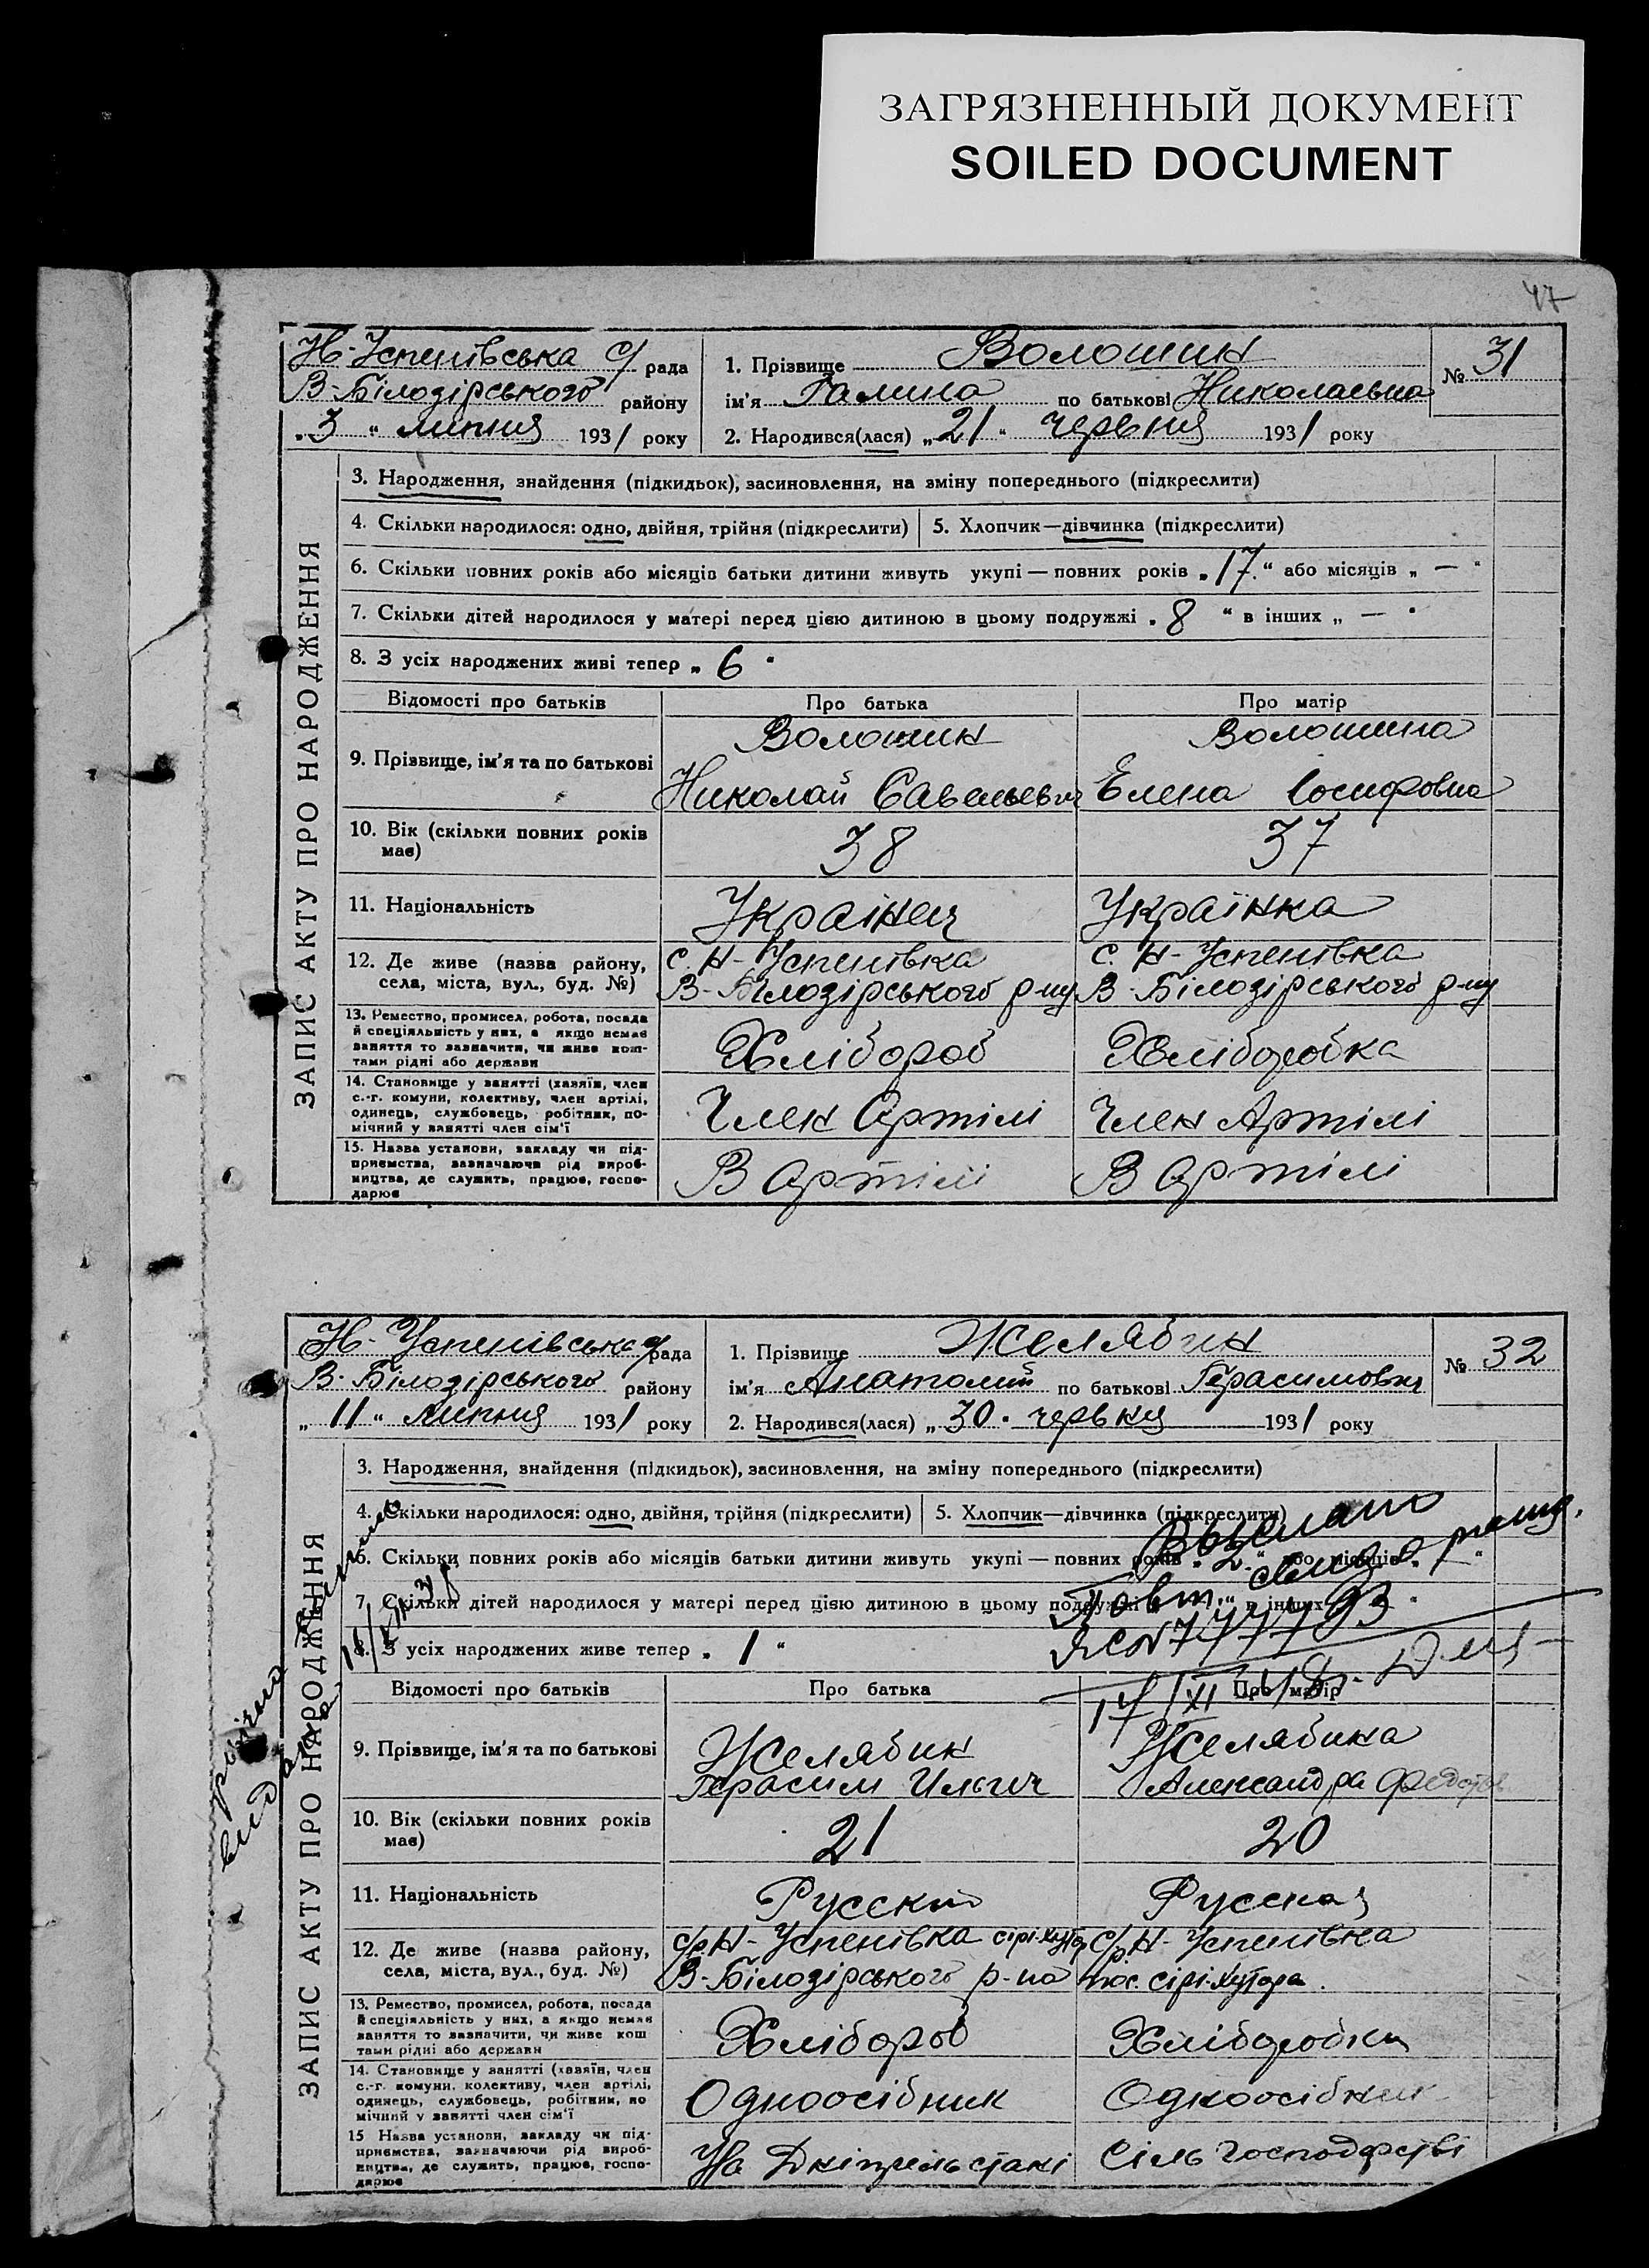 ЗАГРЯЗНЕННЫЙ ДОКУМЕНТ
SOILED DOCUMENT
47
Н-Успенівська с/рада
В-Білозірського району
„3“ липня 1931 року
1. Прізвище Волошин
ім'я Галина по батькові Николаевна
№ 31
2. Народився(лася) „21“ червня 1931 року
ЗАПИС АКТУ ПРО НАРОДЖЕННЯ
3. Народження, знайдення (підкидьок), засиновлення, на зміну попереднього (підкреслити)
4. Скільки народилося: одно, двійня, трійня (підкреслити) 5. Хлопчик—дівчинка (підкреслити)
6. Скільки повних років або місяців батьки дитини живуть укупі — повних років „17“ або місяців „—“
7. Скільки дітей народилося у матері перед цією дитиною в цьому подружжі „8“ в інших „—“
8. З усіх народжених живі тепер „6“
Відомості про батьків Про батька Про матір
9. Прізвище, ім'я та по батькові
Волошин
Николай Савельевич
Волошина
Елена Іосифовна
10. Вік (скільки повних років
має)
38
37
11. Національність
Українец
Українка
12. Де живе (назва району,
села, міста, вул., буд. №)
с. Н-Успенівка
В-Білозірського р-ну
с. Н-Успенівка
В-Білозірського р-ну
13. Ремество, промисел, робота, посада
й спеціяльність у них, а якщо немає
заняття то зазначити, чи живе кош-
тами рідні або держави
Хлібороб
Хліборобка
14. Становище у занятті (хазяїн, член
с.-г. комуни, колективу, член артілі,
одинець, службовець, робітник, по-
мічний у занятті член сім'ї
Член Артілі
Член Артілі
15. Назва установи, закладу чи під-
приємства, зазначаючи рід вироб-
ництва, де служить, працює, госпо-
дарює
В Артілі
В Артілі
Н-Успенівська с/рада
В-Білозірського району
„11“ липня 1931 року
1. Прізвище Желябин
ім'я Анатолий по батькові Герасимович
№ 32
2. Народився(лася) „30“ червня 1931 року
ЗАПИС АКТУ ПРО НАРОДЖЕННЯ
3. Народження, знайдення (підкидьок), засиновлення, на зміну попереднього (підкреслити)
4. Скільки народилося: одно, двійня, трійня (підкреслити) 5. Хлопчик—дівчинка (підкреслити)
6. Скільки повних років або місяців батьки дитини живуть укупі — повних років „2“ або місяців „—“
7. Скільки дітей народилося у матері перед цією дитиною в цьому подружжі в інших
8. З усіх народжених живе тепер „1“
Выслано
Повт. свид. о
17/XI
Відомості про батьків Про батька Про матір
9. Прізвище, ім'я та по батькові
Желябин
Герасим Ильич
Желябина
Александра
10. Вік (скільки повних років
має)
21
20
11. Національність
Русский
Русская
12. Де живе (назва району,
села, міста, вул., буд. №)
с/р. Н-Успенівка сірі-хутор
В-Білозірського р-на
с/р. Н-Успенівка
пос. сірі-хутора
13. Ремество, промисел, робота, посада
й спеціяльність у них, а якщо немає
заняття то зазначити, чи живе кош
тами рідні або держави
Хлібороб
Хліборобка
14. Становище у занятті (хазяїн, член
с.-г. комуни, колективу, член артілі,
одинець, службовець, робітник, по
мічний у занятті член сім'ї
Одноосібник
Одноосібник
15 Назва установи, закладу чи під-
приємства, зазначаючи рід вироб-
ництва, де служить, працює, госпо-
дарює
На
Сіль господарстві